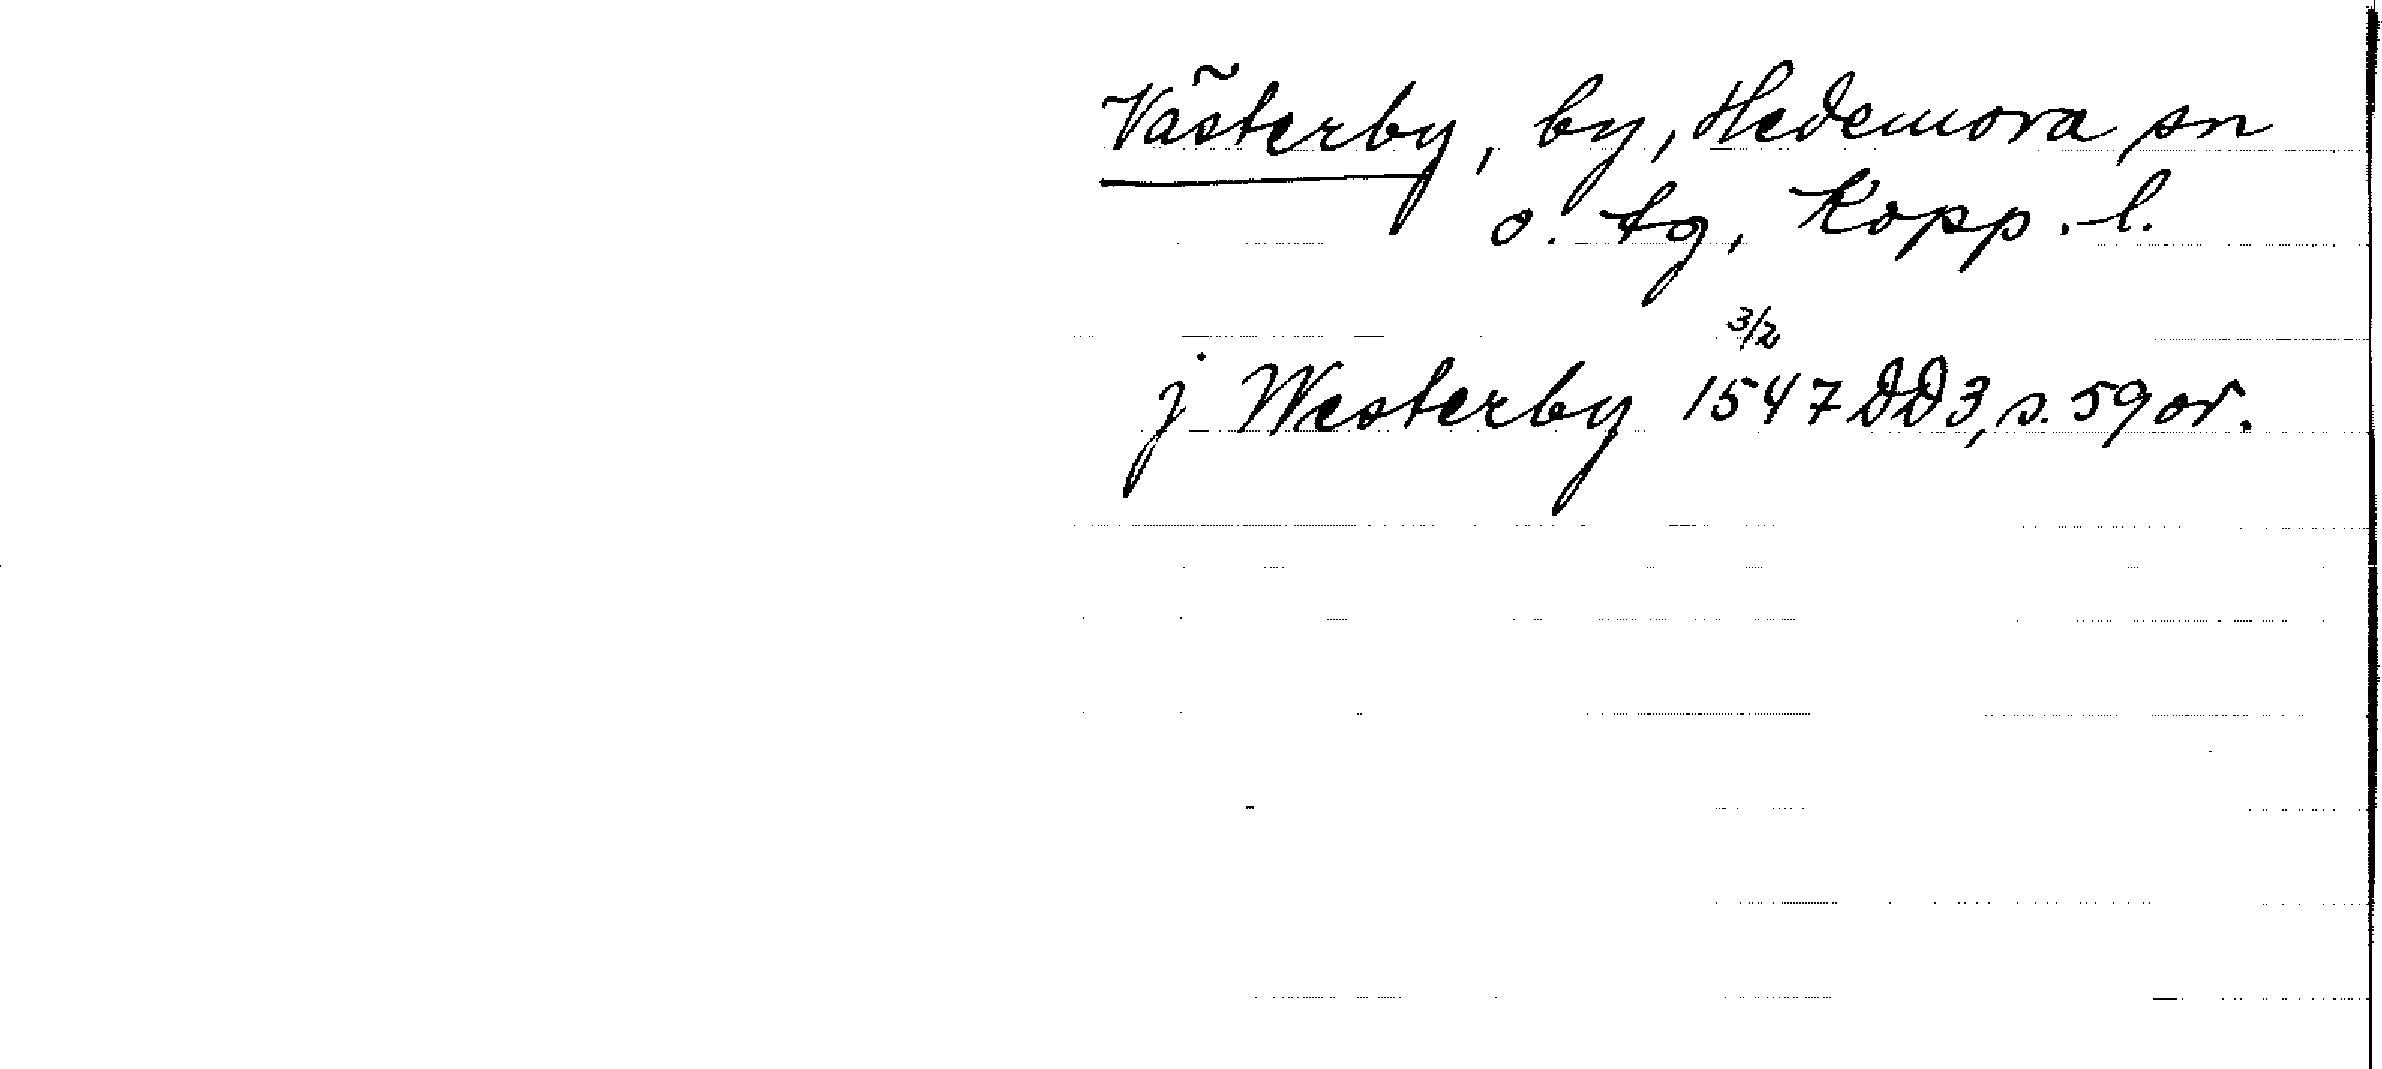 Västerby, by, Hedemora sn
o. tg, Kopp. l.
3/2
j Westerby 1547 DD3, s. 59 or.